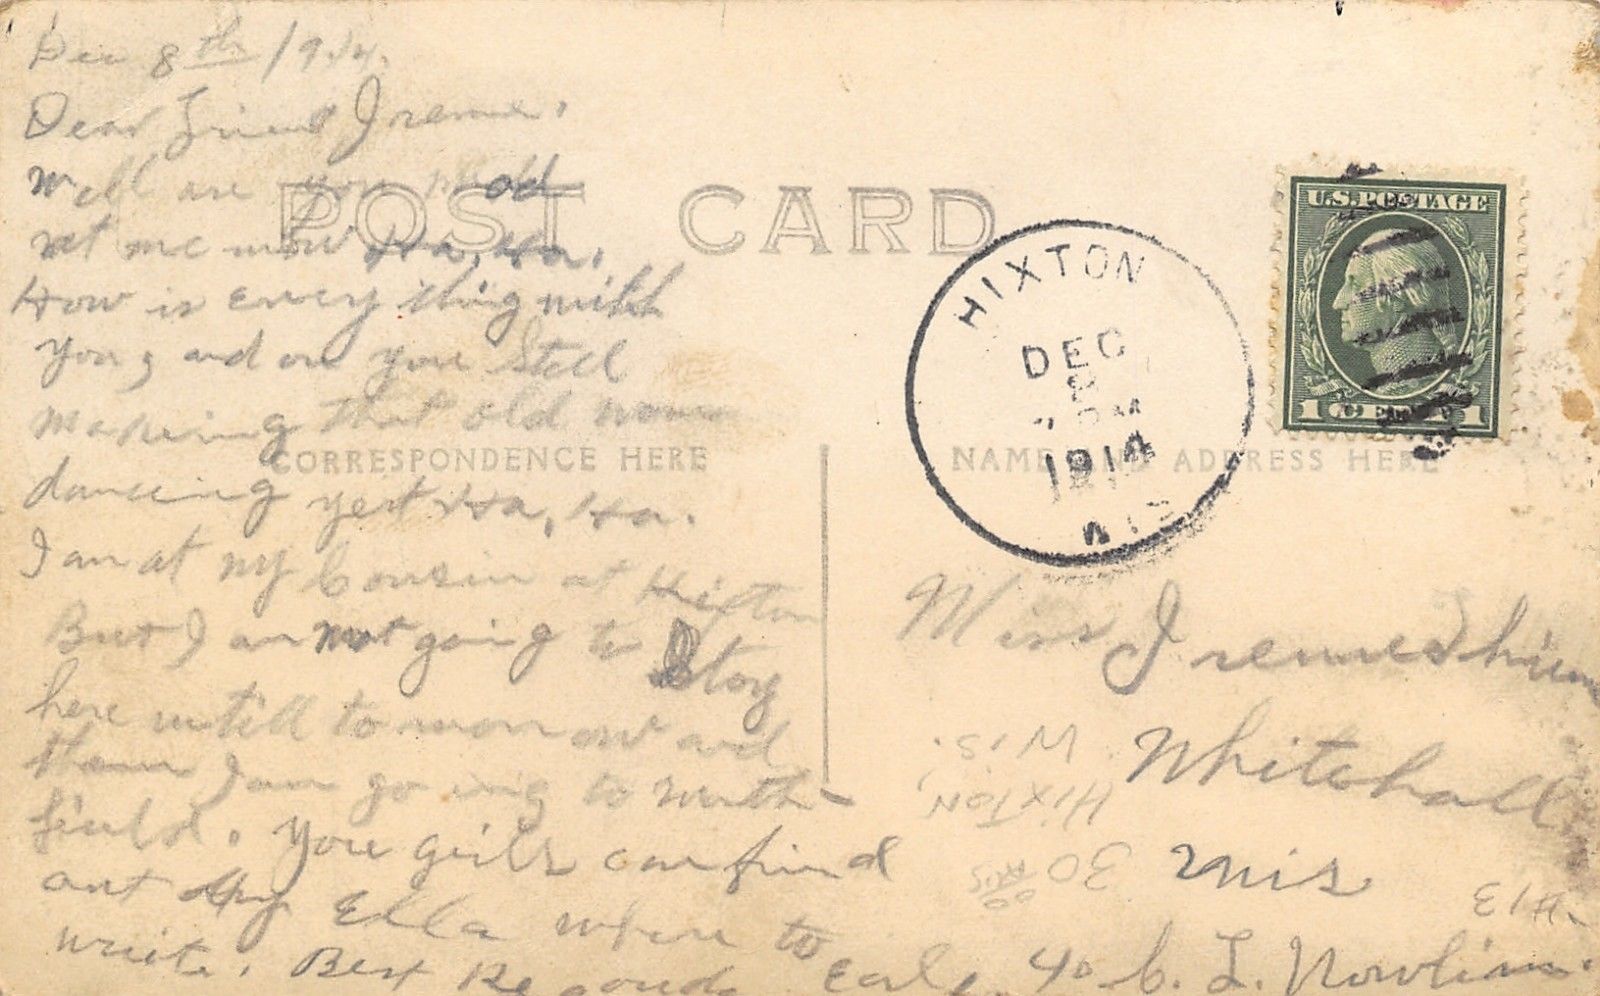 Dec 8th 1914.
Dear Friend Irene.
Well are you mad
at me now Ha, Ha,
How is every thing with
you, and are you still
makeing that old
danceing yet Ha, Ha.
I am at my Cousin at Hixton
But I am not going to Stay
here untill to morrow and
then I am go ing to
field. You girls can find
out by Ella where to
write. Best Regards Earl.
POST CARD
CORRESPONDENCE HERE
NAME AND ADDRESS HERE
U.S. POSTAGE
1 1
HIXTON
DEC
8
PM
1914
WIS
Miss Irene
Whitehall
Wis
c/o C. L. Nowlin.
HIXTON,
WIS.
30
#13